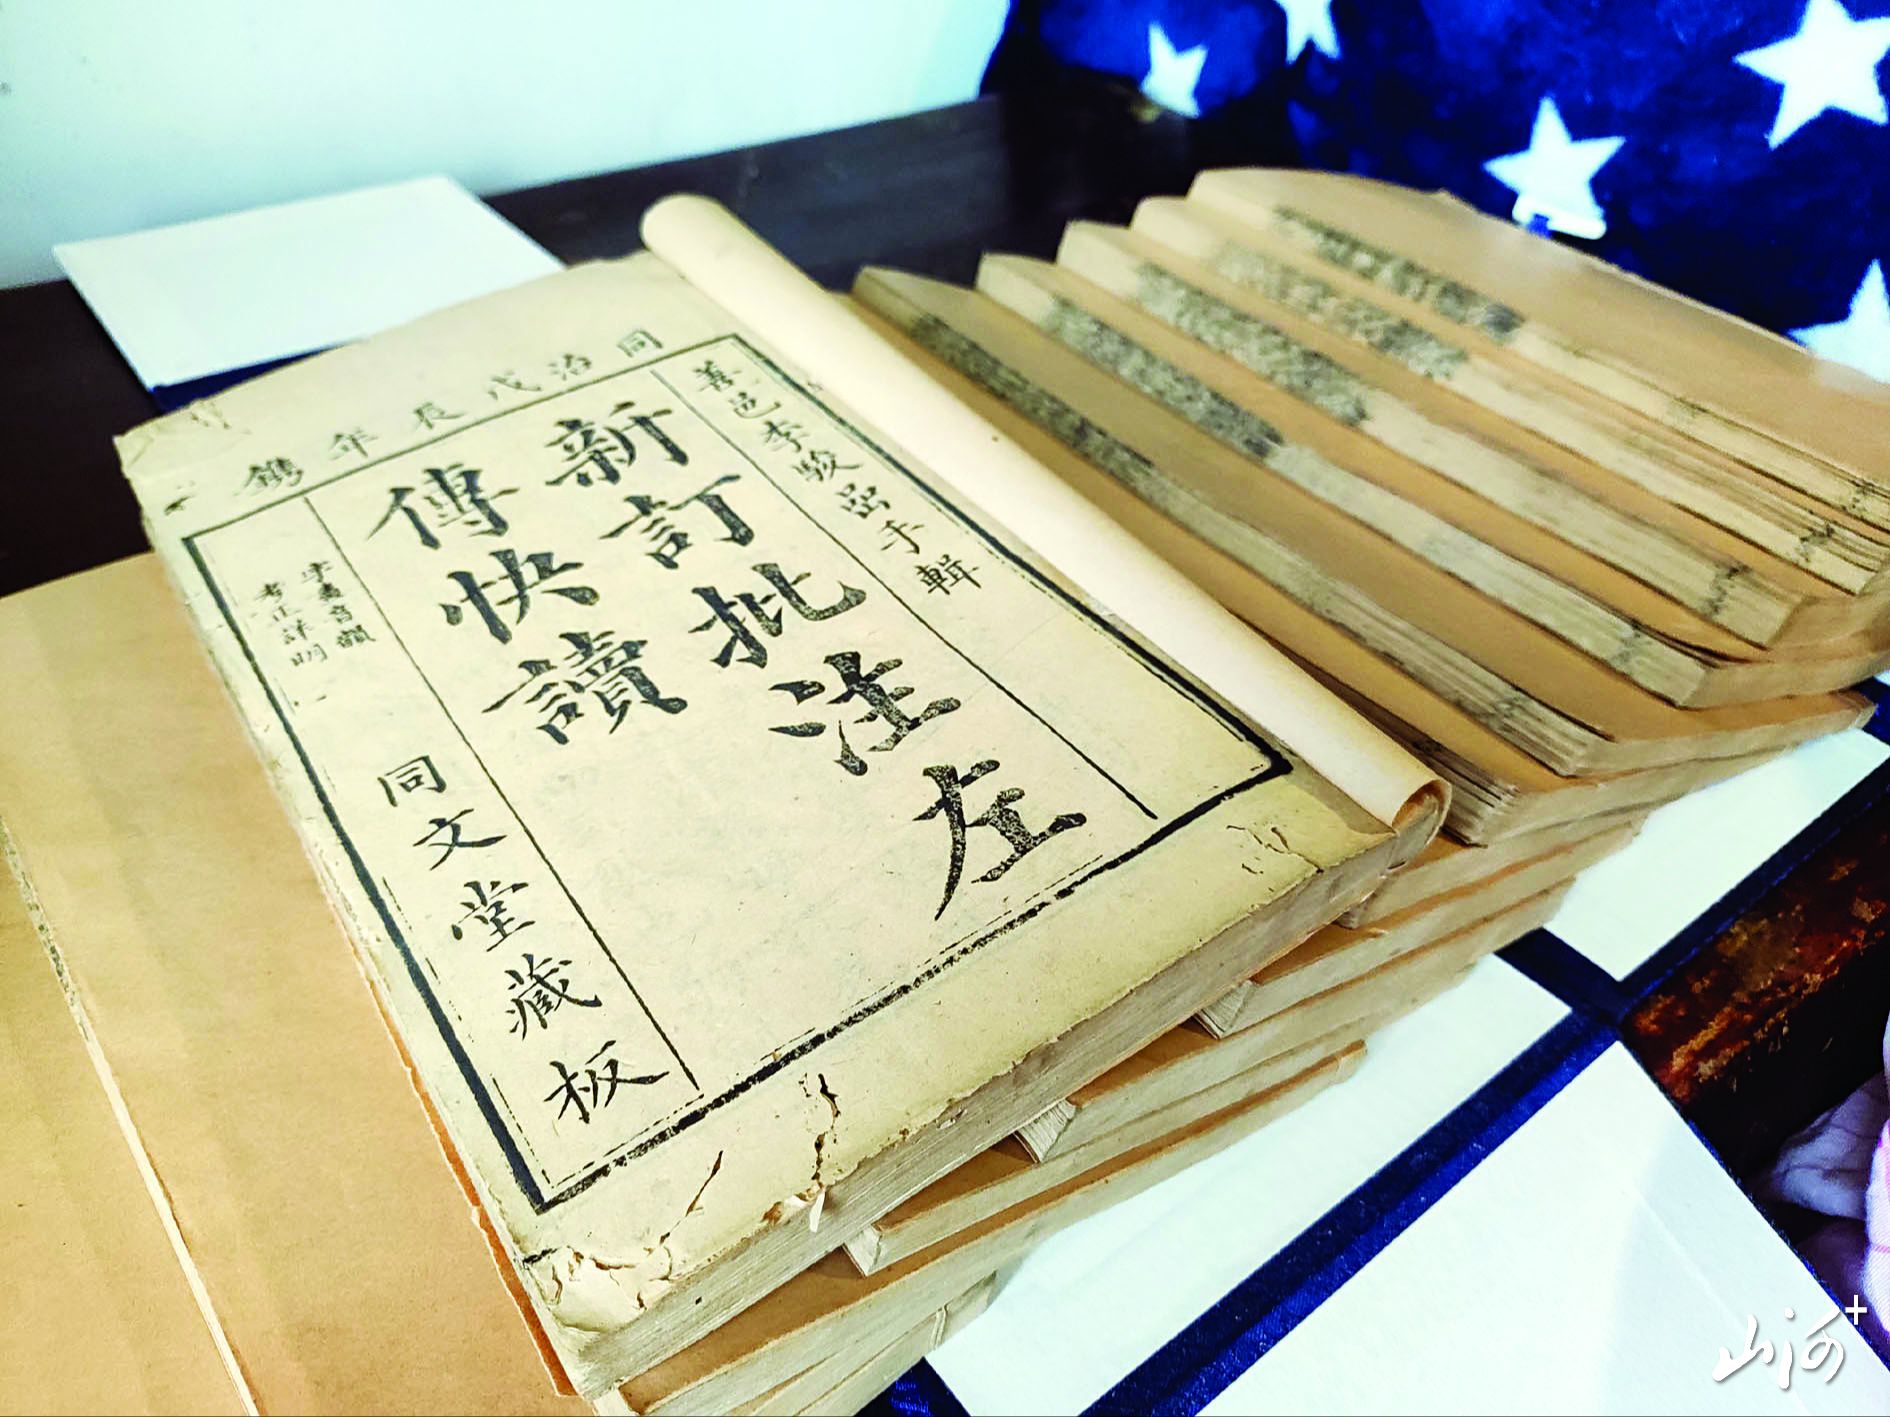 同治戊辰年鐫
善邑李駿嵒手輯
新訂批注左
傳快讀
字畫音韻
考正詳明
同文堂藏板
山河+